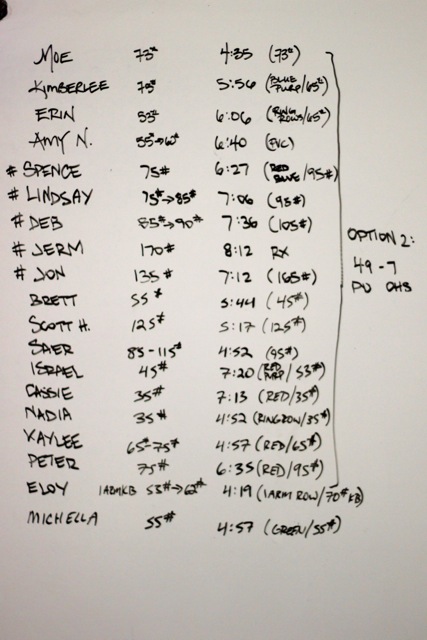 MOE 73# 4:35 (73#)
KIMBERLEE 75# 5:56 (BLUE PURP/65#)
ERIN 53# 6:06 (RING ROWS/65#)
AMY N. 55#→60# 6:40 (PVC)
# SPENCE 75# 6:27 (RED BLUE/95#)
# LINDSAY 75#→85# 7:06 (95#)
# DEB 85#→90# 7:36 (105#)
# JERM 170# 8:12 RX
OPTION 2:
49-7
PU OHS
# JON 135# 7:12 (165#)
BRETT 55# 5:44 (45#)
SCOTT H. 125# 5:17 (125#)
85-115# 4:52 (95#)
ISRAEL 45# 7:20 (RED PURP/53#)
CASSIE 35# 7:13 (RED/35#)
NADIA 35# 4:52 (RING ROW/35#)
KAYLEE 65#-75# 4:57 (RED/65#)
PETER 75# 6:35 (RED/95#)
ELOY 1ARMKB 53#→62# 4:19 (1ARM ROW/70# KB)
MICHELLA 55# 4:57 (GREEN/55#)